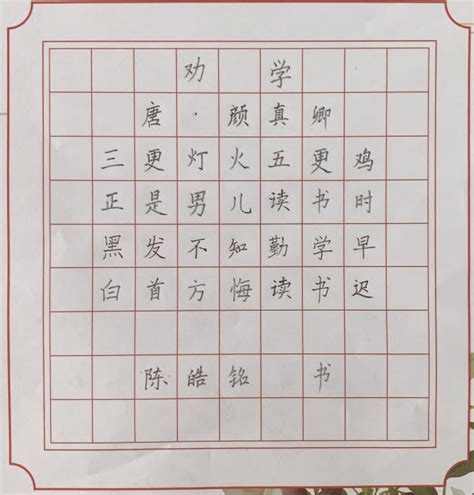 劝学
唐·颜真卿
三更灯火五更鸡
正是男儿读书时
黑发不知勤学早
白首方悔读书迟
陈皓铭 书